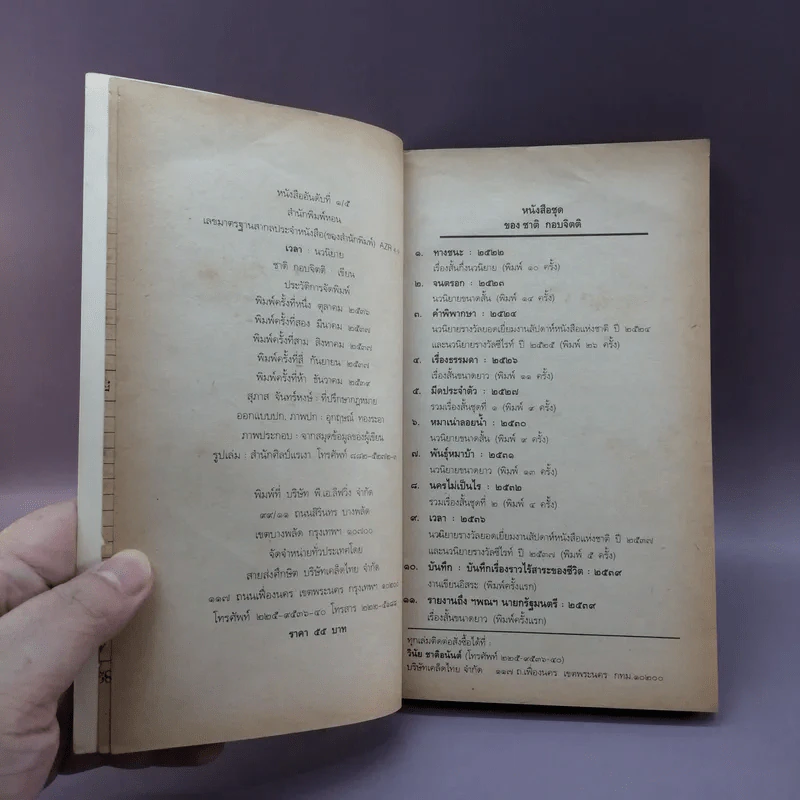 หนังสืออันดับที่ ๑/๕
สำนักพิมพ์หอน
เลขมาตรฐานสากลประจำหนังสือ(ของสำนักพิมพ์) AZR
เวลา : นวนิยาย
ชาติ กอบจิตติ : เขียน
ประวัติการจัดพิมพ์
พิมพ์ครั้งที่หนึ่ง ตุลาคม ๒๕๓๖
พิมพ์ครั้งที่สอง มีนาคม ๒๕๓๗
พิมพ์ครั้งที่สาม สิงหาคม ๒๕๓๗
พิมพ์ครั้งที่สี่ กันยายน ๒๕๓๗
พิมพ์ครั้งที่ห้า ธันวาคม ๒๕๓๙
สุภาส จันทร์หงษ์ : ที่ปรึกษากฎหมาย
ออกแบบปก, ภาพปก : อุกฤษณ์ ทองระอา
ภาพประกอบ : จากสมุดข้อมูลของผู้เขียน
รูปเล่ม : สำนักศิลป์แรเงา โทรศัพท์
พิมพ์ที่ บริษัท พี.เอ.ลีฟวิ่ง จำกัด
๙๙/๑๑ ถนนสิรินทร บางพลัด
เขตบางพลัด กรุงเทพฯ ๑๐๗๐๐
จัดจำหน่ายทั่วประเทศโดย
สายส่งศึกษิต บริษัทเคล็ดไทย จำกัด
๑๑๗ ถนนเฟื่องนคร เขตพระนคร กรุงเทพฯ ๑๐๒๐๐
โทรศัพท์ ๒๒๕-๙๕๓๖-๔๐ โทรสาร
ราคา ๕๕ บาท
หนังสือชุด
ของ ชาติ กอบจิตติ
๑. ทางชนะ : ๒๕๒๒
เรื่องสั้นกึ่งนวนิยาย (พิมพ์ ๑๐ ครั้ง)
๒. จนตรอก : ๒๕๒๓
นวนิยายขนาดสั้น (พิมพ์ ๑๔ ครั้ง)
๓. คำพิพากษา : ๒๕๒๔
นวนิยายรางวัลยอดเยี่ยมงานสัปดาห์หนังสือแห่งชาติ ปี ๒๕๒๔
และนวนิยายรางวัลซีไรท์ ปี ๒๕๒๕ (พิมพ์ ๒๖ ครั้ง)
๔. เรื่องธรรมดา : ๒๕๒๖
เรื่องสั้นขนาดยาว (พิมพ์ ๑๑ ครั้ง)
๕. มีดประจำตัว : ๒๕๒๗
รวมเรื่องสั้นชุดที่ ๑ (พิมพ์ ๙ ครั้ง)
๖. หมาเน่าลอยน้ำ : ๒๕๓๐
นวนิยายขนาดสั้น (พิมพ์ ๙ ครั้ง)
๗. พันธุ์หมาบ้า : ๒๕๓๑
นวนิยายขนาดยาว (พิมพ์ ๑๓ ครั้ง)
๘. นครไม่เป็นไร : ๒๕๓๒
รวมเรื่องสั้นชุดที่ ๒ (พิมพ์ ๔ ครั้ง)
๙. เวลา : ๒๕๓๖
นวนิยายรางวัลยอดเยี่ยมงานสัปดาห์หนังสือแห่งชาติ ปี ๒๕๓๗
และนวนิยายรางวัลซีไรท์ ปี ๒๕๓๗ (พิมพ์ ๕ ครั้ง)
๑๐. บันทึก : บันทึกเรื่องราวไร้สาระของชีวิต : ๒๕๓๙
งานเขียนอิสระ (พิมพ์ครั้งแรก)
๑๑. รายงานถึง ฯพณฯ นายกรัฐมนตรี : ๒๕๓๙
เรื่องสั้นขนาดยาว (พิมพ์ครั้งแรก)
ทุกเล่มติดต่อสั่งซื้อได้ที่ :
วินัย ชาติอนันต์ (โทรศัพท์ ๒๒๕-๙๕๓๖-๔๐)
บริษัทเคล็ดไทย จำกัด ๑๑๗ ถ.เฟื่องนคร เขตพระนคร กทม.๑๐๒๐๐